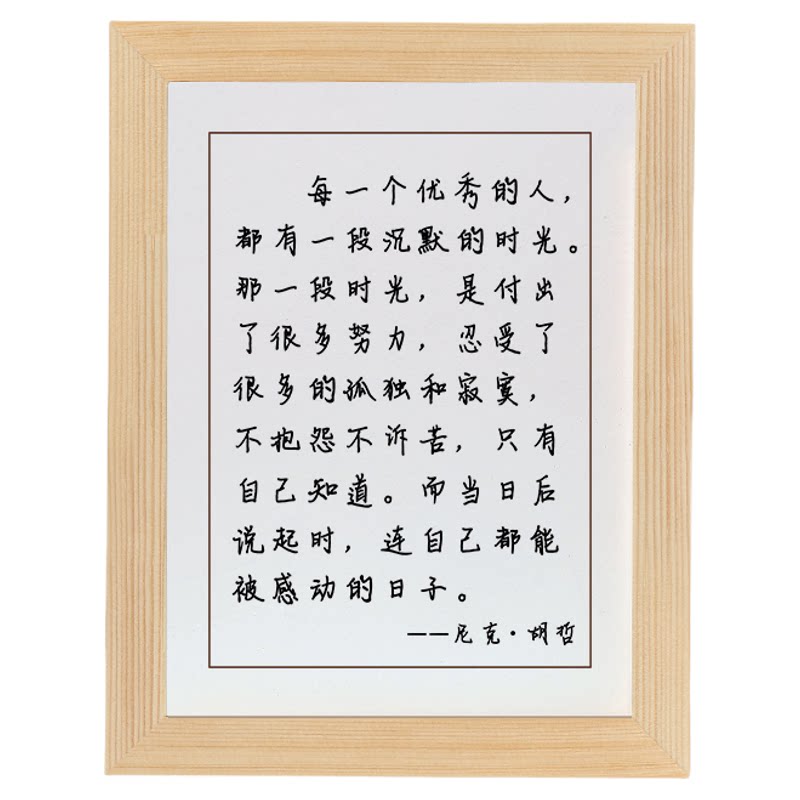 每一个优秀的人，
都有一段沉默的时光。
那一段时光，是付出
了很多努力，忍受了
很多的孤独和寂寞，
不抱怨不诉苦，只有
自己知道。而当日后
说起时，连自己都能
被感动的日子。
——尼克·胡哲